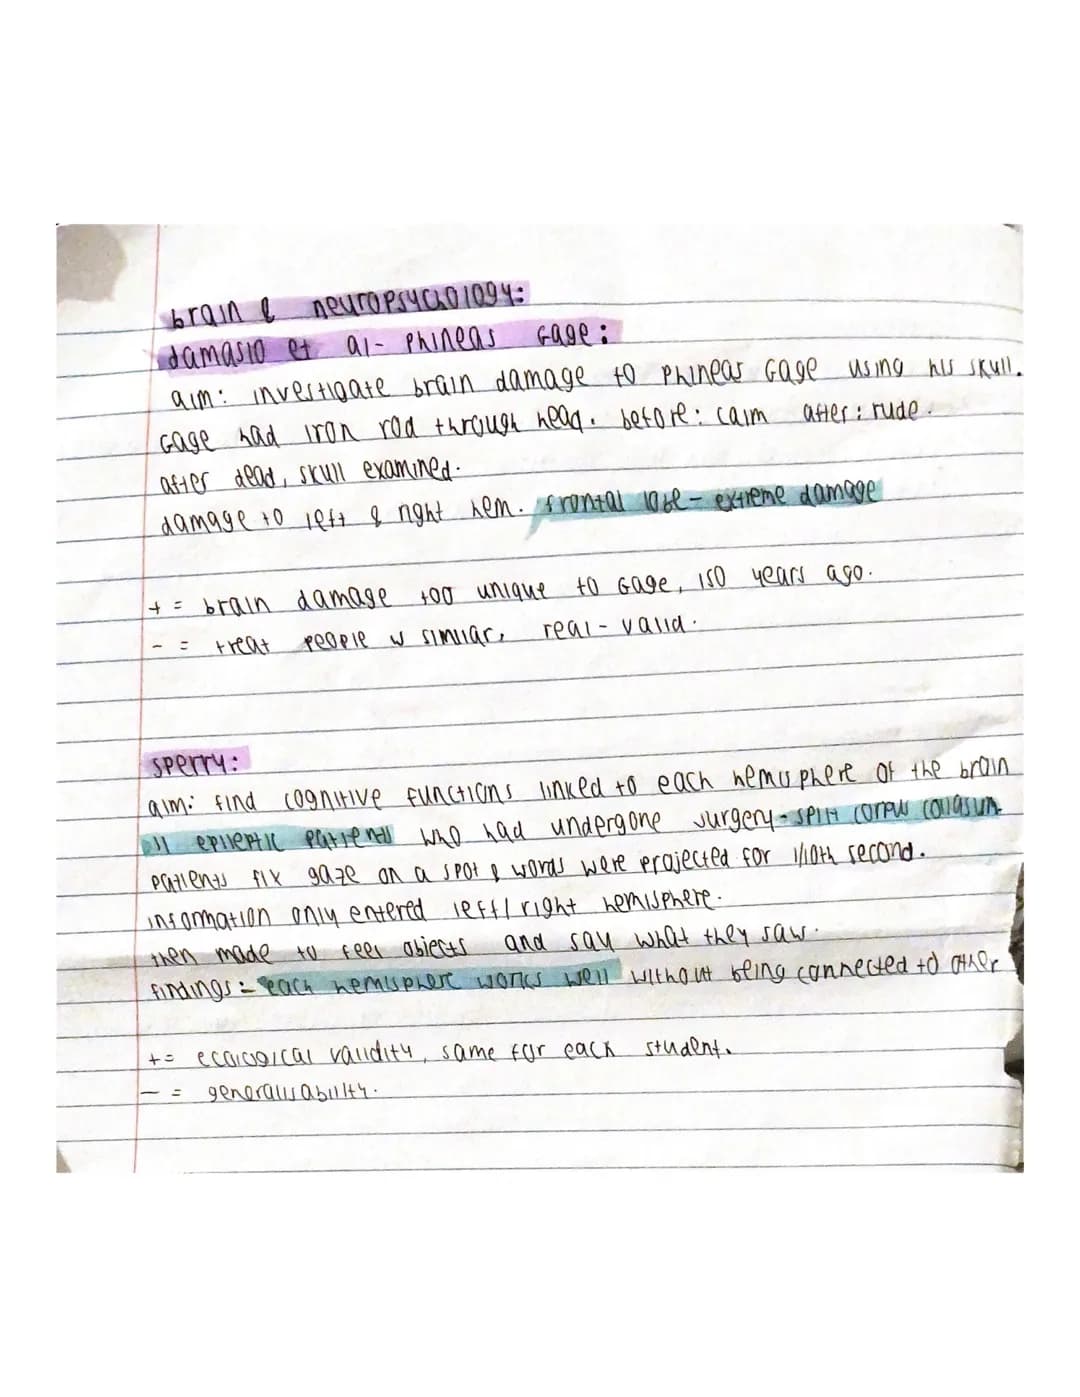 brain & neuropsychology:
damasio et al- Phineas Gage:
aim: investigate brain damage to Phineas Gage using his skull.
Gage had iron rod through head. before: calm after: rude.
after dead, skull examined.
damage to left & right hem. frontal lobe - extreme damage
+ = brain damage too unique to Gage, 150 years ago.
- = treat people w similar, real-valid.
sperry:
aim: find cognitive functions linked to each hemisphere of the brain
11 epileptic patients who had undergone surgery - split corpus collasum.
patients fix gaze on a spot & words were projected for 1/10th second.
information only entered left/right hemisphere.
then made to feel objects and say what they saw.
findings: each hemisphere works well without being connected to other
+= ecological validity, same for each student.
- = generalisability.